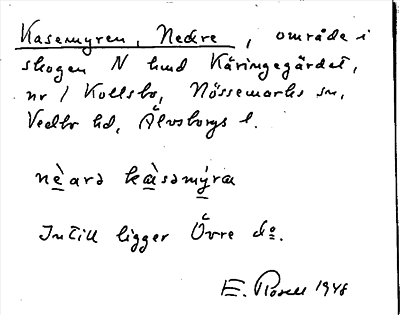 Kasemyren, Nedre, område i
skogen N hmd Käringegärdet,
nr 1 Kollsbo, Nössemarks sn,
Vedbo hd, Älvsborgs l.
nèarə kàsəmýra
Intill ligger Övre do.
E. Rosell 1948